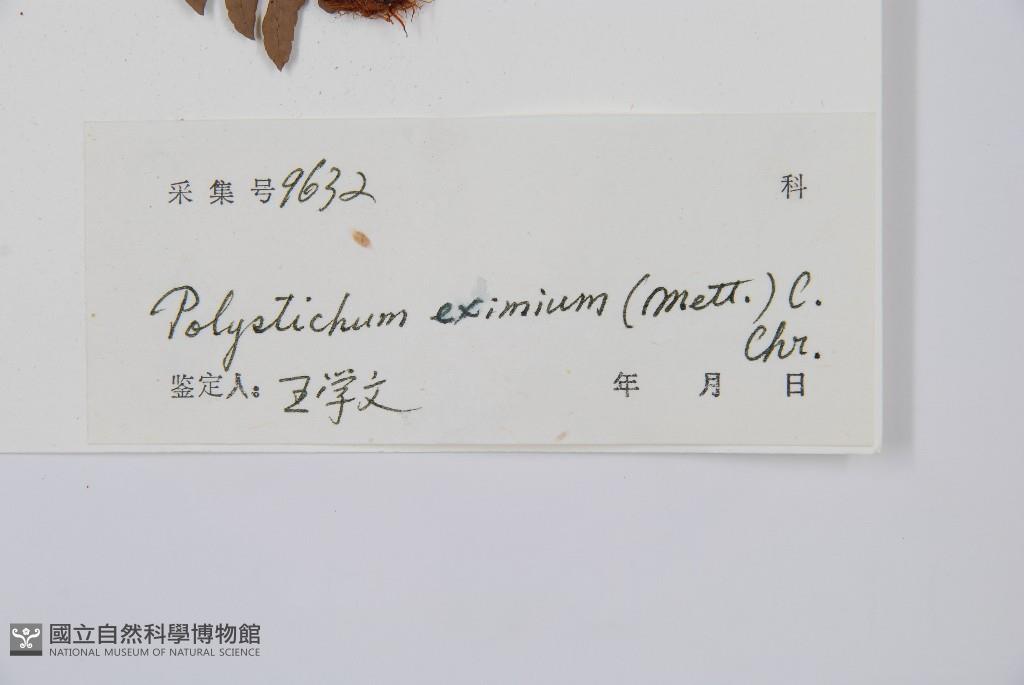 采集号9632 科
Polystichum eximium (Mett.) C.
Chr.
鉴定人: 王学文 年 月 日
國立自然科學博物館
NATIONAL MUSEUM OF NATURAL SCIENCE